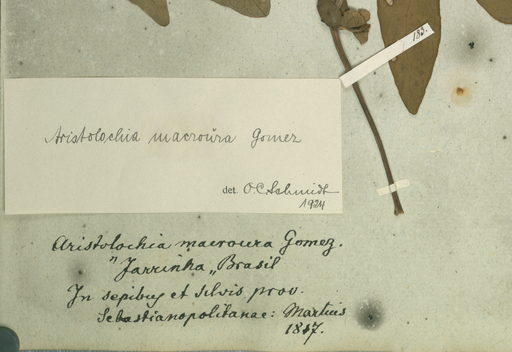 183.
Aristolochia macroura Gomez
det. O. C. Schmidt
1924
Aristolochia macroura Gomez.
"Jarrinha„ Brasil
In sepibus et silvis prov.
Sebastianopolitanae: Martius
1817.